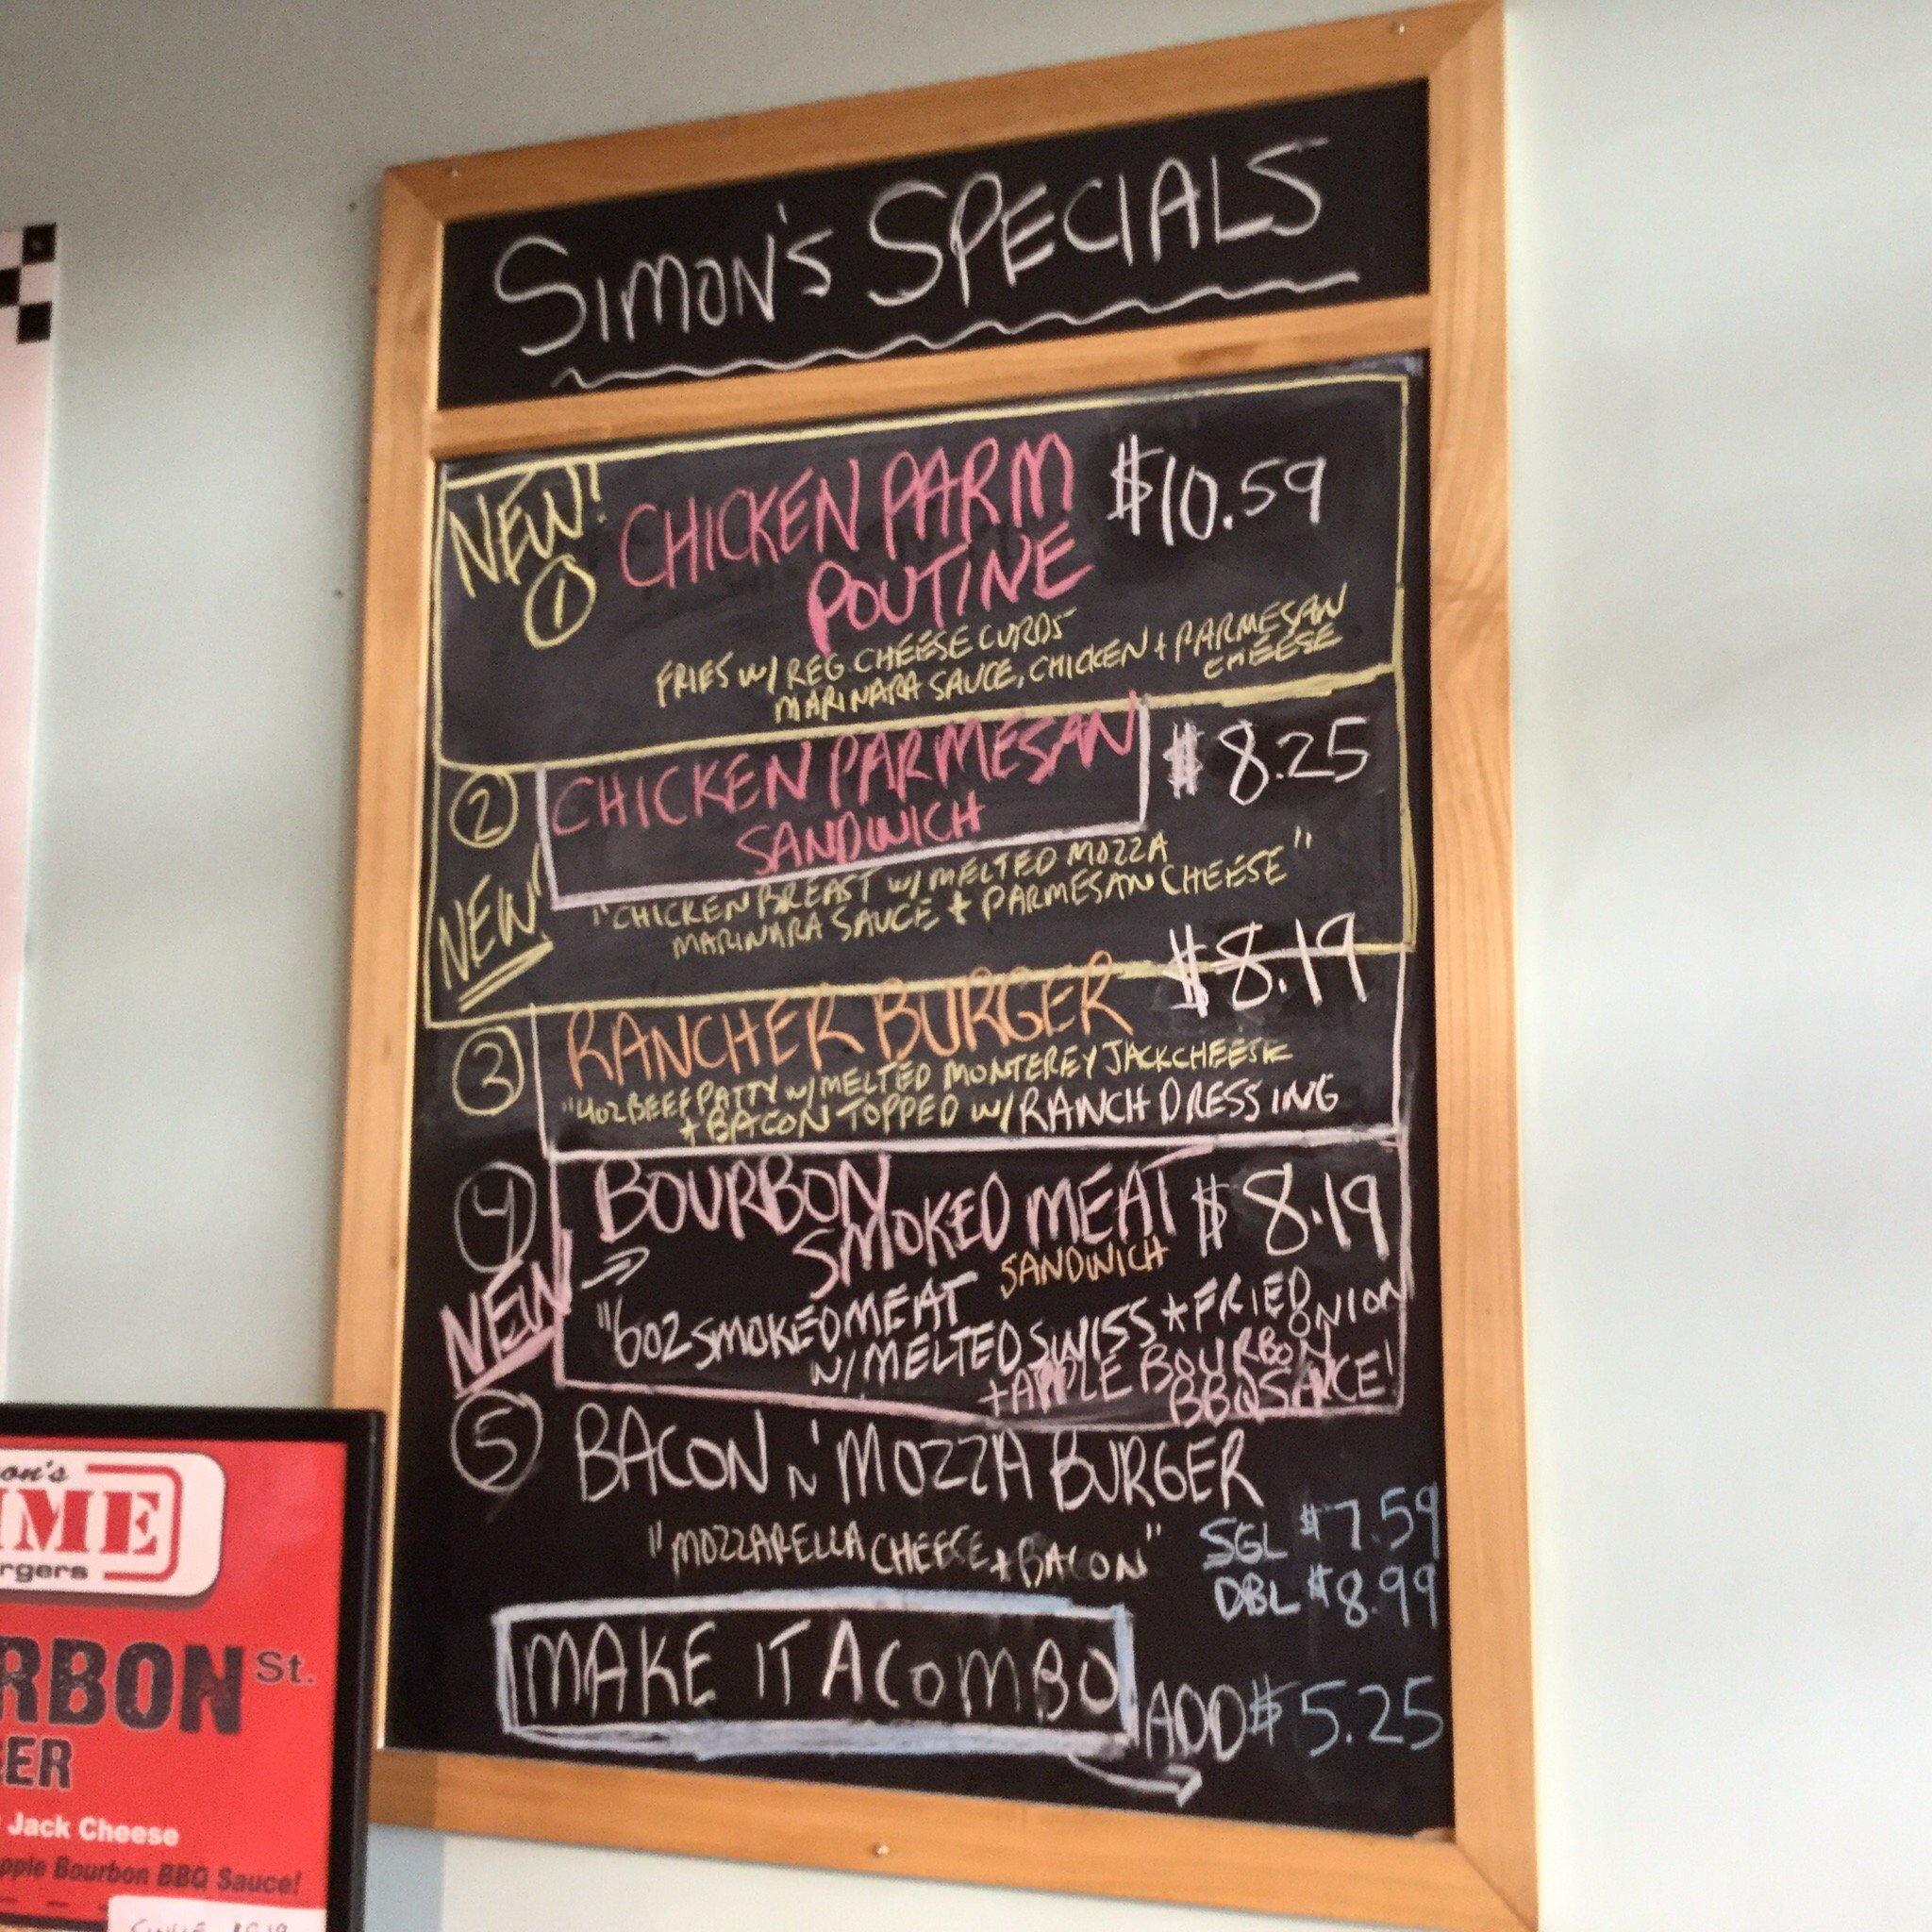 SIMON'S SPECIALS
NEW!
① CHICKEN PARM $10.59
POUTINE
FRIES W/ REG. CHEESE CURDS
MARINARA SAUCE, CHICKEN + PARMESAN
CHEESE
② CHICKEN PARMESAN $8.25
SANDWICH
NEW!
"CHICKEN BREAST W/ MELTED MOZZA
MARINARA SAUCE + PARMESAN CHEESE"
③ RANCHER BURGER $8.19
"4OZ BEEF PATTY W/ MELTED MONTEREY JACK CHEESE
+ BACON TOPPED W/ RANCH DRESSING
④ BOURBON
SMOKED MEAT $8.19
SANDWICH
NEW
"6OZ SMOKED MEAT
W/ MELTED SWISS + FRIED ONION
+ APPLE BOURBON
BBQ SAUCE!
⑤ BACON N' MOZZA BURGER
"MOZZARELLA CHEESE + BACON"
SGL $7.59
DBL $8.99
MAKE IT A COMBO ADD $5.25
on's
IME
rgers
RBON St.
ER
Jack Cheese
pple Bourbon BBQ Sauce!